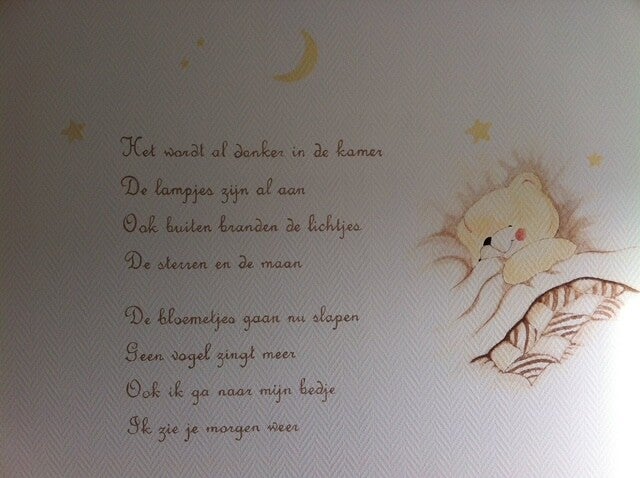 Het wordt al donker in de kamer
De lampjes zijn al aan
Ook buiten branden de lichtjes
De sterren en de maan
De bloemetjes gaan nu slapen
Geen vogel zingt meer
Ook ik ga naar mijn bedje
Ik zie je morgen weer